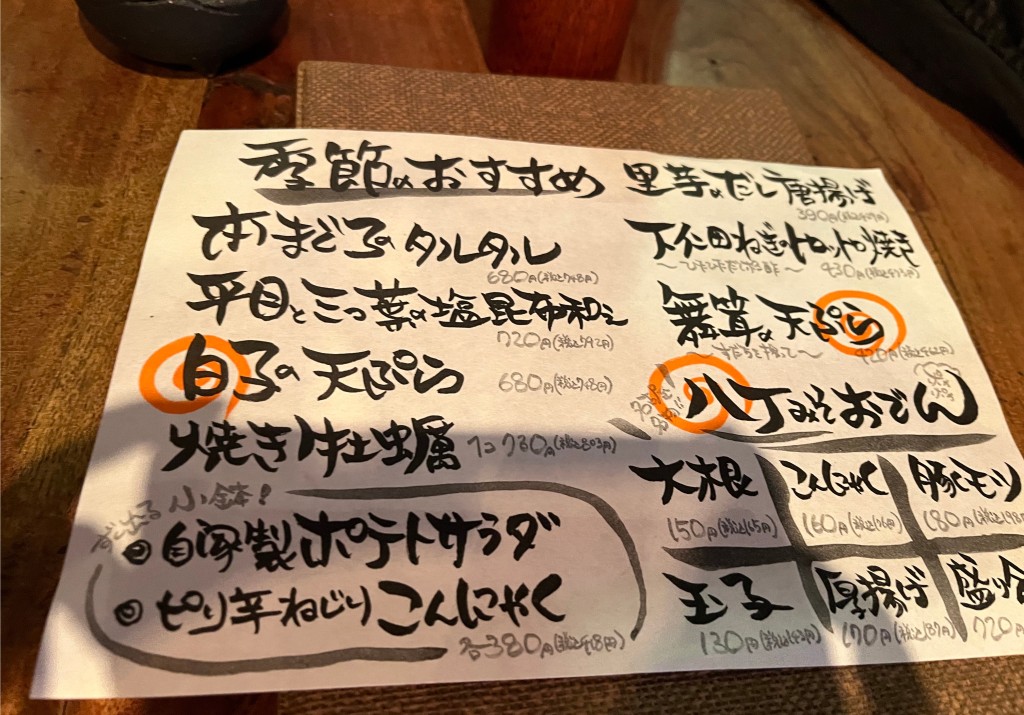 季節のおすすめ
本まぐろのタルタル
680円(税込748円)
平目と三つ葉の塩昆布和え
720円(税込792円)
白子の天ぷら
680円(税込748円)
焼き牡蠣
1コ730円(税込803円)
すぐ出る小鉢!
自家製ポテトサラダ
ピリ辛ねじりこんにゃく
各380円(税込418円)
里芋のだし唐揚げ
390円(税込429円)
下仁田ねぎのホイル焼き
430円(税込473円)
舞茸の天ぷら
〜すだちを搾って〜
420円(税込462円)
八丁みそおでん
大根
150円(税込165円)
こんにゃく
160円(税込176円)
豚モツ
180円(税込198円
玉子
130円(税込143円)
厚揚げ
170円(税込187円)
盛り合
720円